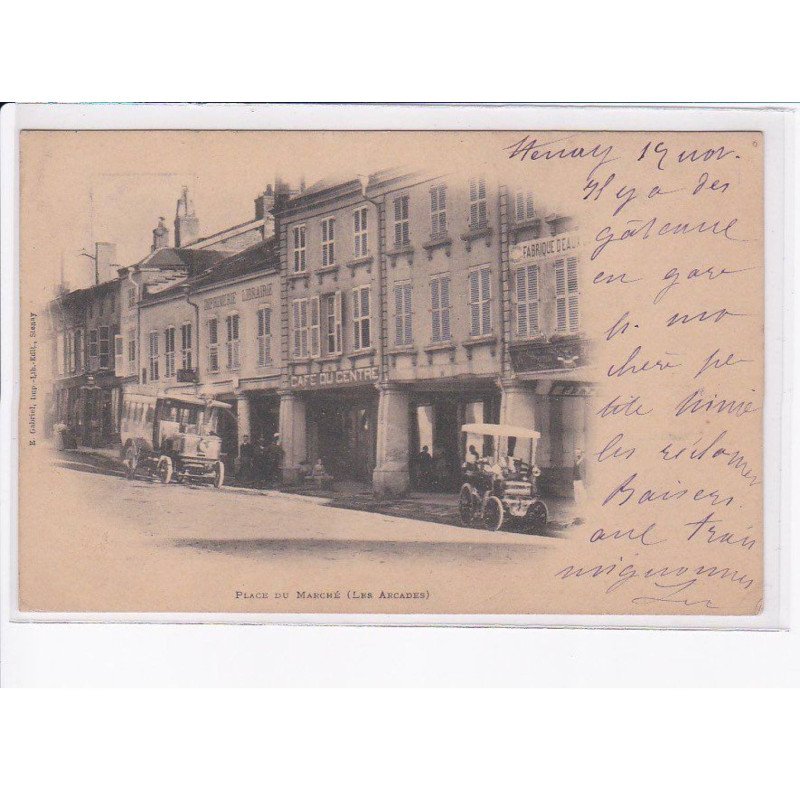 Stenay 19 nov.
Il y a des
gâteaux
en gare
ma
chère pe
tite Mimie
les réclamer
Baisers
aux trois
mignonnes
FABRIQUE D'EAUX
IMPRIMERIE LIBRAIRIE
CAFÉ DU CENTRE
E. Gabriel, Imp.-Lib.-Edit., Stenay
PLACE DU MARCHÉ (LES ARCADES)